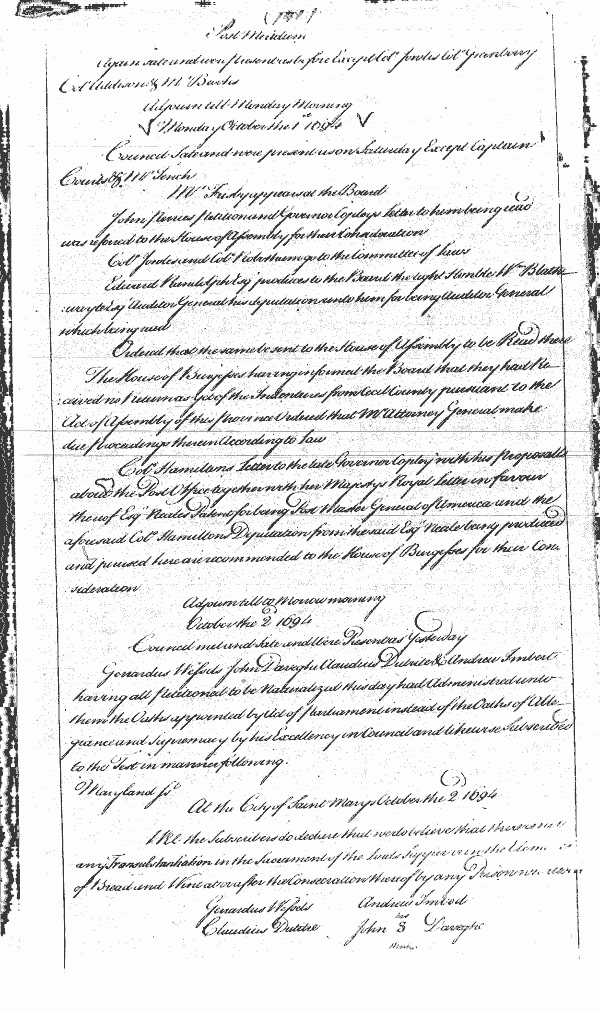 Post Meridiem
Again sate and were present as before Except Colo Jowles Colo Greenberry
Colo Addison & Mr Brooks
Adjourn till Monday Morning
Monday October the 1st 1694
Council Sate and were present as on Saturday Except Captain
Courts & Mr Tench
Mr Frisby appears at the Board
John Perries Petition and Governor Copleys letter to them being read
was referred to the House of Assembly for their Consideration
Colo Jowles and Colo Robotham go to the Committee of Laws
Edward Randolph Esqr produces to the Board the right Honble Wm Blath
wayte Esqr Auditor General his deputation unto him for being Auditor General
which being read
Ordered that the same be sent to the House of Assembly to be Read there
The House of Burgesses having informed the Board that they had Re
ceived no Return as yet of the Indentures from Cecil County pursuant to the
Act of Assembly of this Province Ordered that Mr Attorney General make
due proceedings therein According to Law
Colo Hamiltons Letter to the late Governor Copley with his Proposalls
about the Post Office together with her Majestys Royal Letter in favour
thereof Esqr Neales Patent for being Post Master General of America and the
aforesaid Colo Hamiltons Deputation from the said Esqr Neale being produced
and perused here are recommended to the House of Burgesses for their Con
sideration
Adjourn till to Morrow morning
October the 2 1694
Council met and Sate and Were Present as Yesterday
Gerrardus Wessels John Daveghe Claudius Dutitre & Andrew Imbert
having all Petitioned to be Naturalized this day had Administred unto
them the Oaths appointed by Act of Parliament instead of the Oaths of Alle
giance and Supremacy by his Excellency in Council and likewise Subscribed
to the Test in manner following.
Maryland ss
At the City of Saint Marys October the 2 1694
WEE the Subscribers do declare that wee do believe that there is not
any Transubstantiation in the Sacrament of the Lords Supper or in the Elem
of Bread and Wine at or after the Consecration thereof by any Person
Gerardus Wessels Andrew Imbert
Claudius Dutitre John 8 Daveghe
his